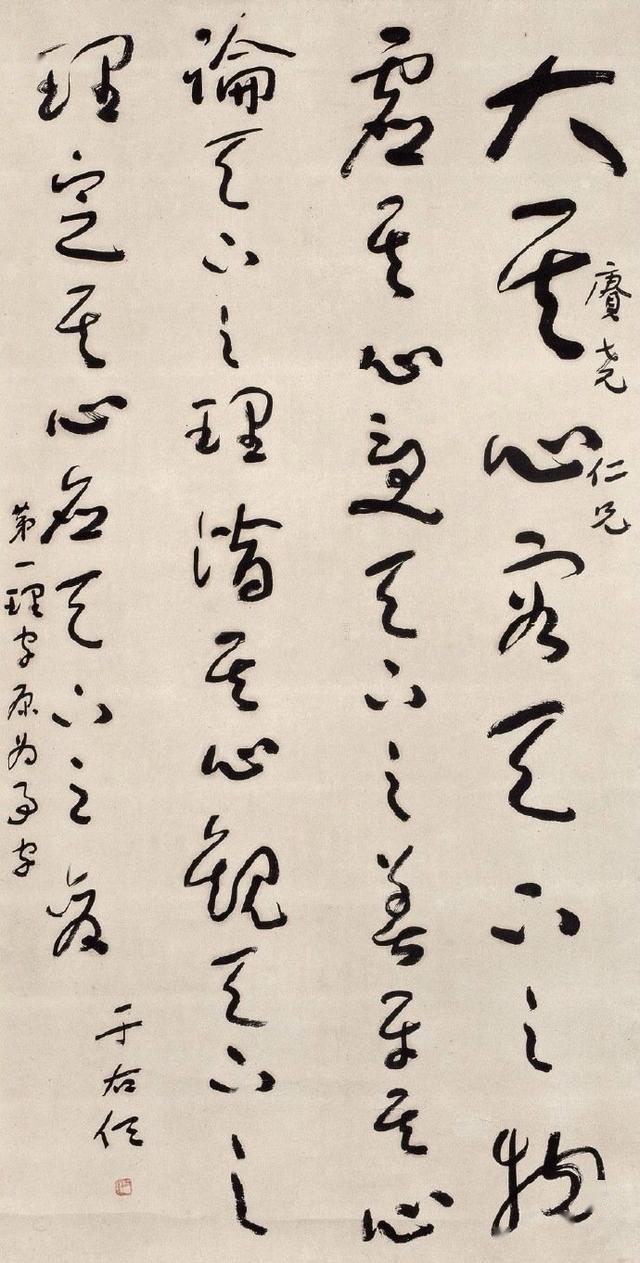 大其心容天下之物
賡堯仁兄
虛其心受天下之善平其心
論天下之理潛其心觀天下之
理定其心應天下之變
第一理字原为事字
于右任